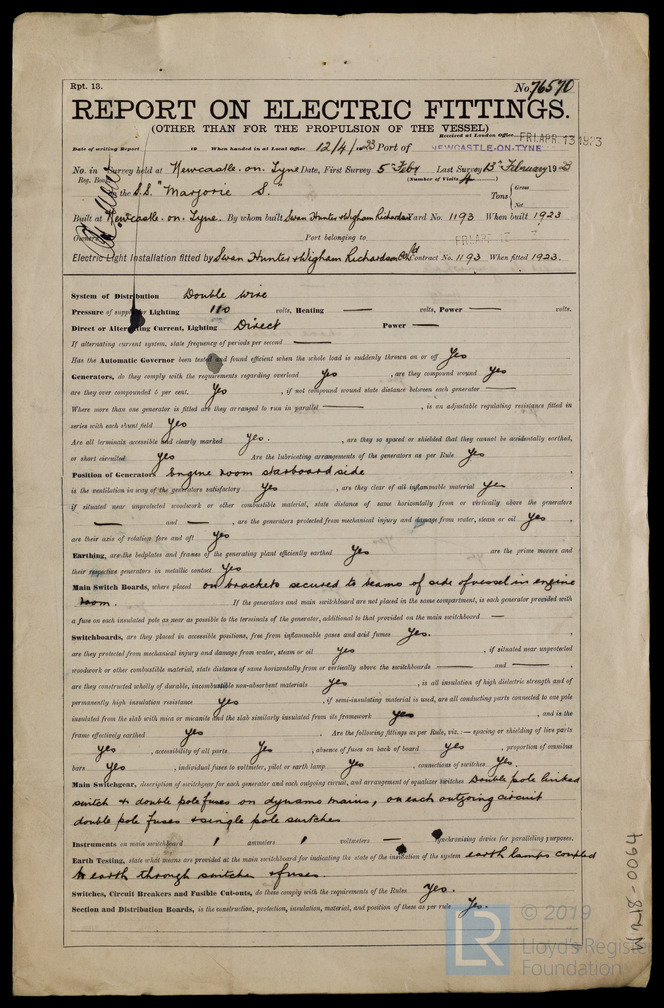 Rpt. 13.
No. 76570
REPORT ON ELECTRIC FITTINGS.
(OTHER THAN FOR THE PROPULSION OF THE VESSEL)
Received at London Office FRI. APR. 13 1923
Date of writing Report 19 When handed in at Local Office 12/4/1923 Port of NEWCASTLE-ON-TYNE
No. in Survey held at Newcastle. on. Tyne Date, First Survey 5th Feby Last Survey 13th February 1923
Reg. Book. (Number of Visits 4)
on the S.S. "Marjorie S." Tons { Gross
Net
Built at Newcastle. on. Tyne. By whom built Swan Hunter & Wigham Richardson Yard No. 1193 When built 1923
Owners Port belonging to
FRI. APR
Electric Light Installation fitted by Swan Hunter & Wigham Richardson Co Ld Contract No. 1193 When fitted 1923.
System of Distribution Double wire
Pressure of supply for Lighting 110 volts, Heating — volts, Power — volts.
Direct or Alternating Current, Lighting Direct Power —
If alternating current system, state frequency of periods per second —
Has the Automatic Governor been tested and found efficient when the whole load is suddenly thrown on or off Yes
Generators, do they comply with the requirements regarding overload yes , are they compound wound yes
are they over compounded 5 per cent. Yes , if not compound wound state distance between each generator —
Where more than one generator is fitted are they arranged to run in parallel — , is an adjustable regulating resistance fitted in
series with each shunt field Yes
Are all terminals accessible and clearly marked yes. , are they so spaced or shielded that they cannot be accidentally earthed,
or short circuited yes Are the lubricating arrangements of the generators as per Rule Yes
Position of Generators Engine room starboard side
is the ventilation in way of the generators satisfactory Yes , are they clear of all inflammable material yes ,
if situated near unprotected woodwork or other combustible material, state distance of same horizontally from or vertically above the generators
— and — , are the generators protected from mechanical injury and damage from water, steam or oil yes ,
are their axis of rotation fore and aft yes
Earthing, are the bedplates and frames of the generating plant efficiently earthed Yes are the prime movers and
their respective generators in metallic contact Yes
Main Switch Boards, where placed on brackets secured to beams of side of vessel in engine
room. If the generators and main switchboard are not placed in the same compartment, is each generator provided with
a fuse on each insulated pole as near as possible to the terminals of the generator, additional to that provided on the main switchboard —
Switchboards, are they placed in accessible positions, free from inflammable gases and acid fumes Yes. ,
are they protected from mechanical injury and damage from water, steam or oil yes , if situated near unprotected
woodwork or other combustible material, state distance of same horizontally from or vertically above the switchboards — and — ,
are they constructed wholly of durable, incombustible non-absorbent materials Yes , is all insulation of high dielectric strength and of
permanently high insulation resistance yes , if semi-insulating material is used, are all conducting parts connected to one pole
insulated from the slab with mica or micanite and the slab similarly insulated from its framework yes , and is the
frame effectively earthed yes . Are the following fittings as per Rule, viz.:— spacing or shielding of live parts
yes , accessibility of all parts Yes , absence of fuses on back of board yes , proportion of omnibus
bars yes , individual fuses to voltmeter, pilot or earth lamp Yes , connections of switches Yes.
Main Switchgear, description of switchgear for each generator and each outgoing circuit, and arrangement of equalizer switches Double pole linked
switch & double pole fuses on dynamo mains, on each outgoing circuit
double pole fuses & single pole switches
Instruments on main switchboard 1 ammeters 1 voltmeters — synchronizing device for paralleling purposes.
Earth Testing, state what means are provided at the main switchboard for indicating the state of the insulation of the system earth lamps coupled
to earth through switches & fuses.
Switches, Circuit Breakers and Fusible Cut-outs, do these comply with the requirements of the Rules Yes.
Section and Distribution Boards, is the construction, protection, insulation, material, and position of these as per rule Yes.
W218-0064
LR
© 2019
Lloyd's Register
Foundation